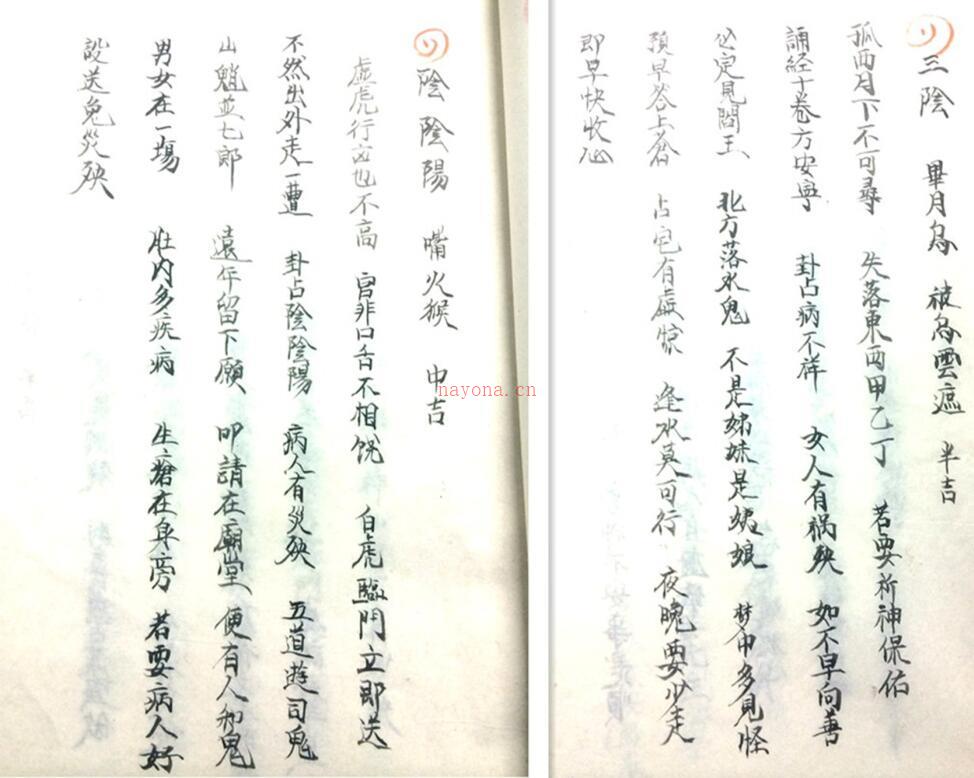 三陰 畢月烏 被烏雲遮 半吉
孤西月下不可尋 失落東西甲乙丁 若要祈神保佑
誦経十卷方安寧 卦占病不祥 女人有禍殃 如不早向善
必定見閻王 北方落水鬼 不是姊妹是姨娘 梦中多見怪
預早答上蒼 占宅有虚惊 逢水莫可行 夜晚要少走
即早快收心
陰陰陽 嘴火猴 中吉
虚虎行凶也不高 官非口舌不相饶 白虎臨門立即送
不然出外走一遭 卦占陰陰陽 病人有災殃 五道遊司鬼
山魈並七郎 遠年留下願 叩請在廟堂 便有人和鬼
男女在一場 肚内多疾病 生瘡在身旁 若要病人好
設送免災殃
nayona.cn